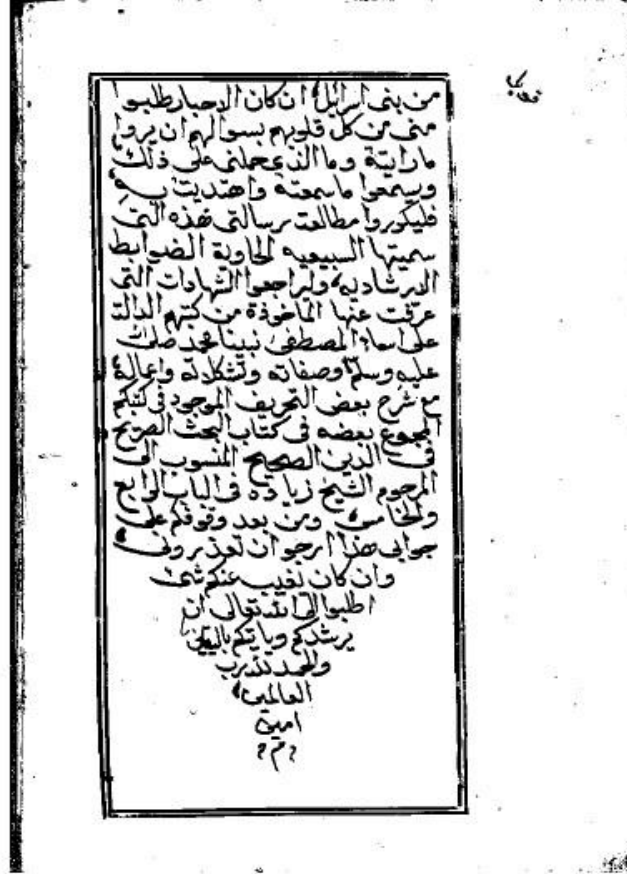 من بني اسرايل، ان كان الاحبار طلبوا
مني من كل قلوبهم بسوالهم ان يروا
ما رايته وما الذي حملني على ذلك،
ويسمعوا ما سمعته واهتديت به،
فليكوروا مطالعت رسالتي هذه التي
سميتها السبيعيه الحاوية الضوابط
الارشاديه، وليراجعوا الشهادات التي
عرفت عنها الماخوذة من كتبهم الدالت
على اسماء المصطفى نبينا محمد صلى الله
عليه وسلم، وصفاته وتشكلاته واعماله،
مع شرح بعض التحريف الموجود في كتبكم
المجموع بعضه في كتاب البحث الصريح
في الدين الصحيح المنسوب الى
المرحوم الشيخ زياده في الباب الرابع
والخامس، ومن بعد وقوفكم على
جوابي هذا ارجو ان تعذروني،
وان كان نغيب عنكم شئ
اطلبوا الى الله تعالى ان
يرشدكم وياتكم باليقين
والحمد لله رب
العالمين،
امين
م